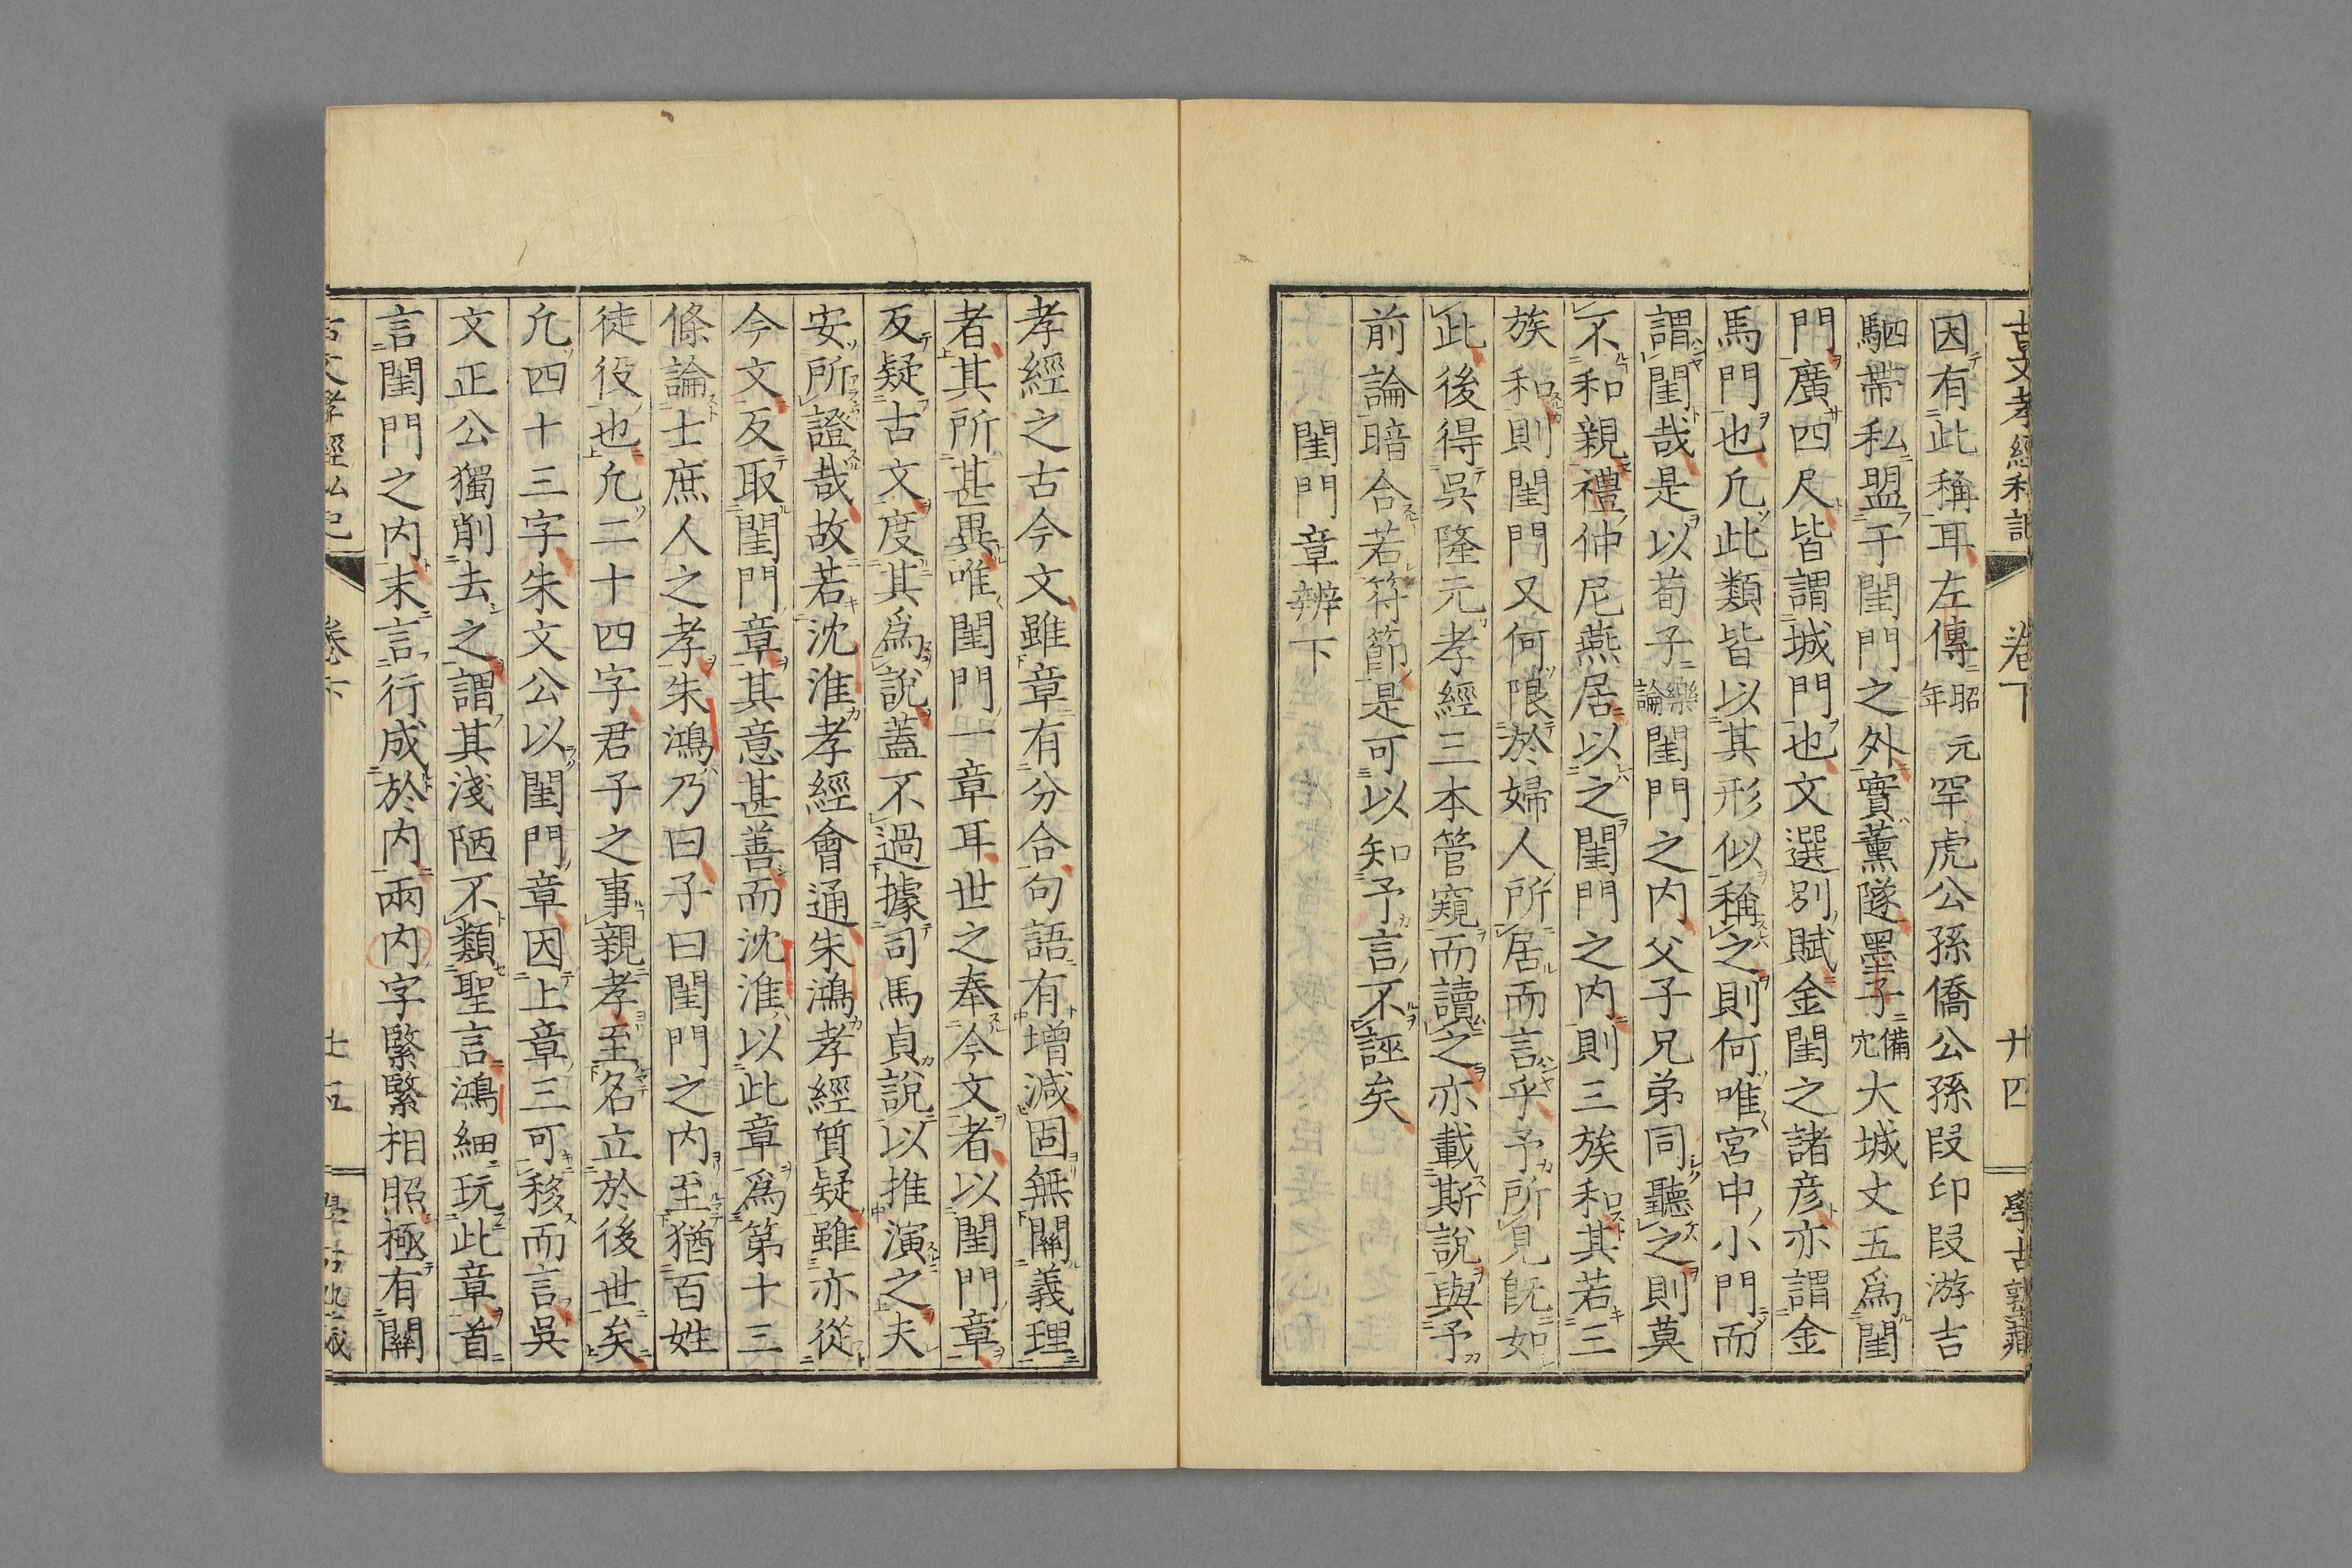 古文孝經私記 卷下 廿四 學古塾藏
因有此稱耳左傳昭元年罕虎公孫僑公孫段印段游吉
駟帶私盟于閨門之外實薰隧墨子備穴大城丈五爲閨
門廣四尺皆謂城門也文選別賦金閨之諸彥亦謂金
馬門也凢此類皆以其形似稱之則何唯宮中小門而
謂閨哉是以荀子樂論閨門之内父子兄弟同聽之則莫
不和親禮仲尼燕居以之閨門之内則三族和其若三
族和則閨門又何限於婦人所居而言乎予所見旣如
此後得吳隆元孝經三本管窺而讀之亦載斯說與予
前論暗合若符節是可以知予言不誣矣
閨門章辨下
孝經之古今文雖章有分合句語有增減固無關義理
者其所甚異唯閨門一章耳世之奉今文者以閨門章
反疑古文度其爲說蓋不過據司馬貞說以推演之夫
安所證哉故若沈淮孝經會通朱鴻孝經質疑雖亦從
今文反取閨門章其意甚善而沈淮以此章爲第十三
條論士庶人之孝朱鴻乃曰子曰閨門之内至猶百姓
徒役也凢二十四字君子之事親孝至名立於後世矣
凢四十三字朱文公以閨門章因上章三可移而言吳
文正公獨削去之謂其淺陋不類聖言鴻細玩此章首
言閨門之内末言行成於内兩内字緊緊相照極有關
古文孝經私記 卷下 廿五 學古塾藏